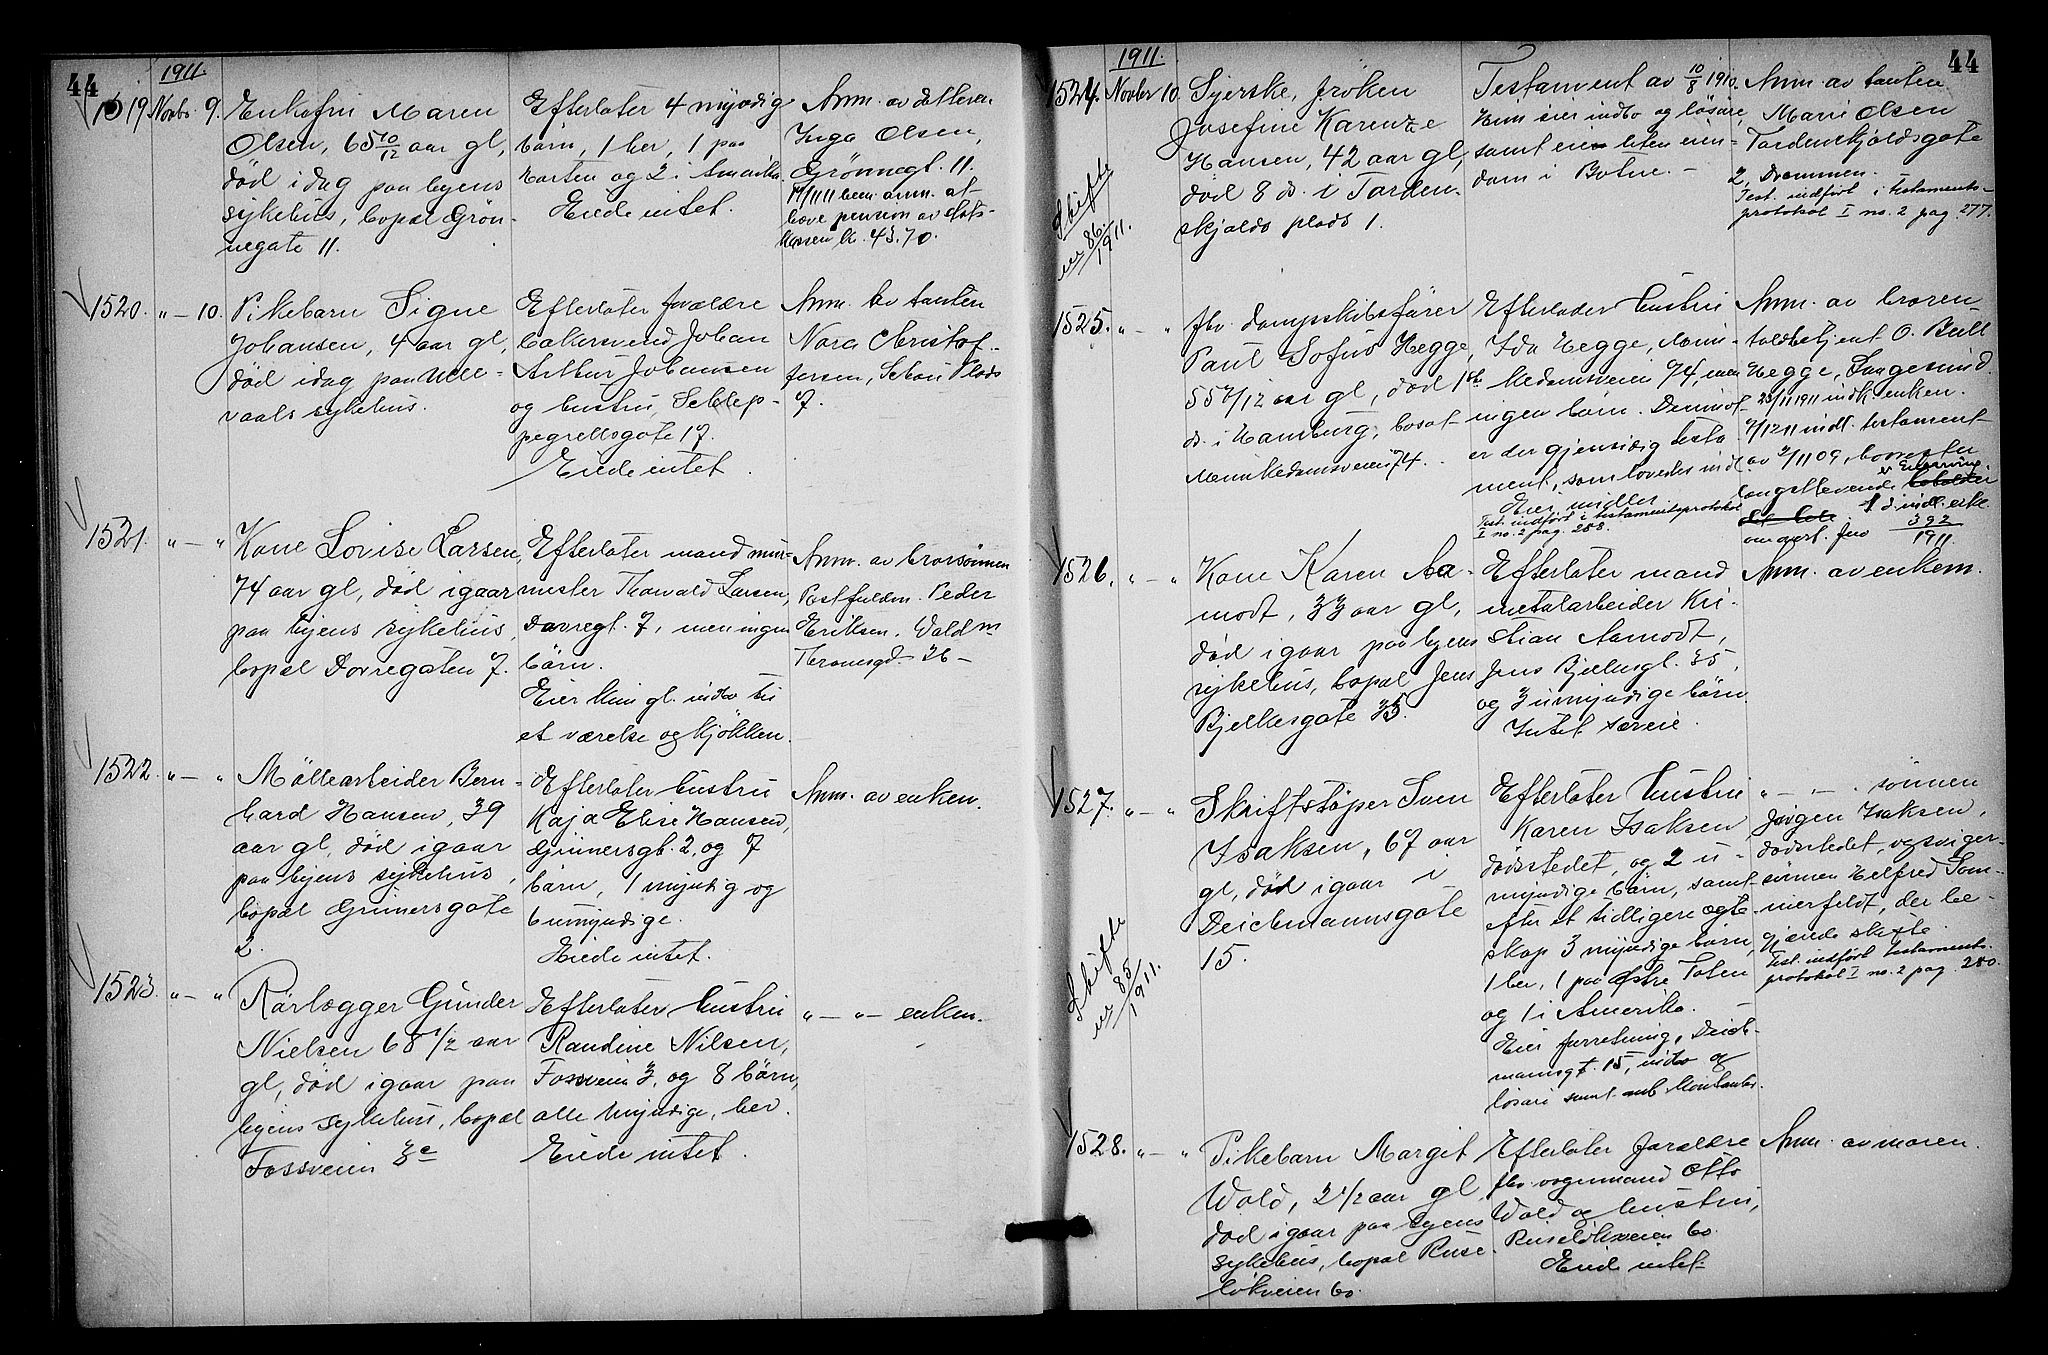 44
1911.
1519 Novbr. 9. Enkefru Maren
Olsen, 65 10/12 aar gl,
død idag paa byens
sykehus, bopæl Grøn-
negate 11.
Efterlater 4 myndig
børn, 1 her, 1 paa
Horten og 2 i Amerika
Eiede intet.
Anm. av datteren
Inga Olsen,
Grønnegt. 11.
havt pension av stats-
kassen kr. 43.70.
1520. " — 10. Pikebarn Signe
Johansen, 4 aar gl,
død idag paa Ulle-
vaals sykehus.
Efterlater forældre
bakersvend Johan
Arthur Johansen
og hustru, Schlep-
pegrellsgate 17.
Eiede intet.
Anm. av tanten
Nora Christof-
fersen, Schous Plads
7.
1521. " — " Kone Lovise Larsen,
74 aar gl, død igaar
paa byens sykehus,
bopæl Dovregaten 7.
Efterlater mand mur-
mester Thorvald Larsen,
Dovregt. 7, men ingen
børn.
Eier kun gl. indbo til
et værelse og kjøkken.
Anm. av brorsønnen
Postfuldm. Peder
Eriksen, Vald m
Thranesgd. 36 —
1522. " — " Møllearbeider Bern-
hard Hansen, 39
aar gl, død igaar
paa byens sykehus,
bopæl Grünersgate
2.
Efterlater hustru
Kaja Elise Hansen,
Grünersgt. 2, og 7
børn, 1 myndig og
6 umyndige.
Eiede intet.
Anm. av enken.
1523. " — " Rørlægger Gunder
Nielsen 68 1/2 aar
gl, død igaar paa
byens sykehus, bopæl
Fossveien 3c
Efterlater hustru
Randine Nilsen,
Fossveien 3, og 8 børn,
alle myndige, her.
Eiede intet.
" — " — enken.
44
1911.
1524. Novbr 10. Syerske, frøken
Josefine Karense
Hansen, 42 aar gl,
død 8 ds. i Torden-
skjolds plads 1.
Skifte
nr 86/1911.
Testament av 10/8 1910.
Hun eier indbo og løsøre,
samt en liten eien-
dom i Botne. —
Anm. av tanten
Marie Olsen
Tordenskjoldsgate
2, Drammen. —
Test. indført i testaments-
protokol I no. 2 pag. 277.
1525. " — " fhv. dampskibsfører
Paul Sofus Hegge,
55 aar gl, død 1ste
ds. i Hamburg, bosat
Munkedamsveien 74.
Efterlader hustru
Ida Hegge, Mun-
kedamsveien 74, men
ingen børn. Derimot
er der gjensidig testa-
ment, som lovedes ind
Eier midler.
Test. indført i testamentsprotokol
I no. 2 pag. 288.
Anm. av broren
toldbetjent O. Bull
Hegge, Langesund.
23/11 1911 indk. enken.
9/12 11 indl. testament
av 2/11 09, hvorefter
længstlevende
392
1911.
1526. " — " Kone Karen Aa-
modt, 33 aar gl,
død igaar paa byens
sykehus, bopæl Jens
Bjelkesgate 35.
Efterlater mand
metalarbeider Kri-
stian Aamodt,
Jens Bjelkesgt. 35,
og 3 umyndige børn
Intet særeie.
Anm. av enkem.
1527. " — " Skriftstøper Sven
Isaksen, 67 aar
gl, død igaar i
Deichmannsgate
15.
Skifte
nr 85/1911.
Efterlater hustru
Karen Isaksen
dødsstedet, og 2 u-
myndige børn, samt
efter et tidligere ægte-
skap 3 myndige børn,
1 her, 1 paa Østre Toten
og 1 i Amerika.
Eier forretning, Deich-
mansgt. 15, indbo og
løsøre samt kontanter.
" — " — sønnen
Jørgen Isaksen,
dødsstedet, og sviger-
sønnen Helfred Som-
merfeldt, der be-
gjærede skifte.
Test. indført testaments-
protokol I no. 2 pag. 280.
1528. " — " Pikebarn Margit
Wold, 2 1/2 aar gl,
død igaar paa byens
sykehus, bopæl Ruse-
løkveien 60.
Efterlater forældre
fhv. vognmand Otto
Wold og hustru,
Ruseløkveien 60.
Eiede intet.
Anm. av moren.